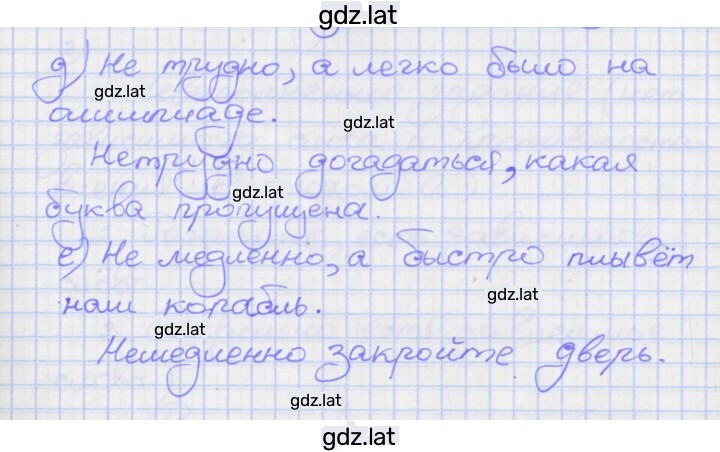 gdz.lat
д) Не трудно, а легко было на
gdz.lat
олимпиаде.
gdz.lat
Нетрудно догадаться, какая
gdz.lat
буква пропущена.
е) Не медленно, а быстро плывёт
gdz.lat
наш корабль.
gdz.lat
Немедленно закройте дверь.
gdz.lat
gdz.lat